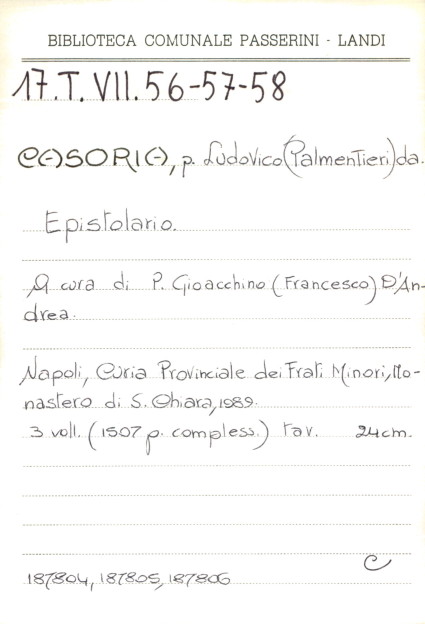 BIBLIOTECA COMUNALE PASSERINI - LANDI
17.T.VII.56-57-58
CASORIA, p. Ludovico (Palmentieri) da.
Epistolario.
A cura di P. Gioacchino (Francesco) D'An-
drea.
Napoli, Curia Provinciale dei Frati Minori, Mo-
nastero di S. Chiara, 1989.
3 voll. (1507 p. compless.) tav. 24cm.
C
187804, 187805, 187806